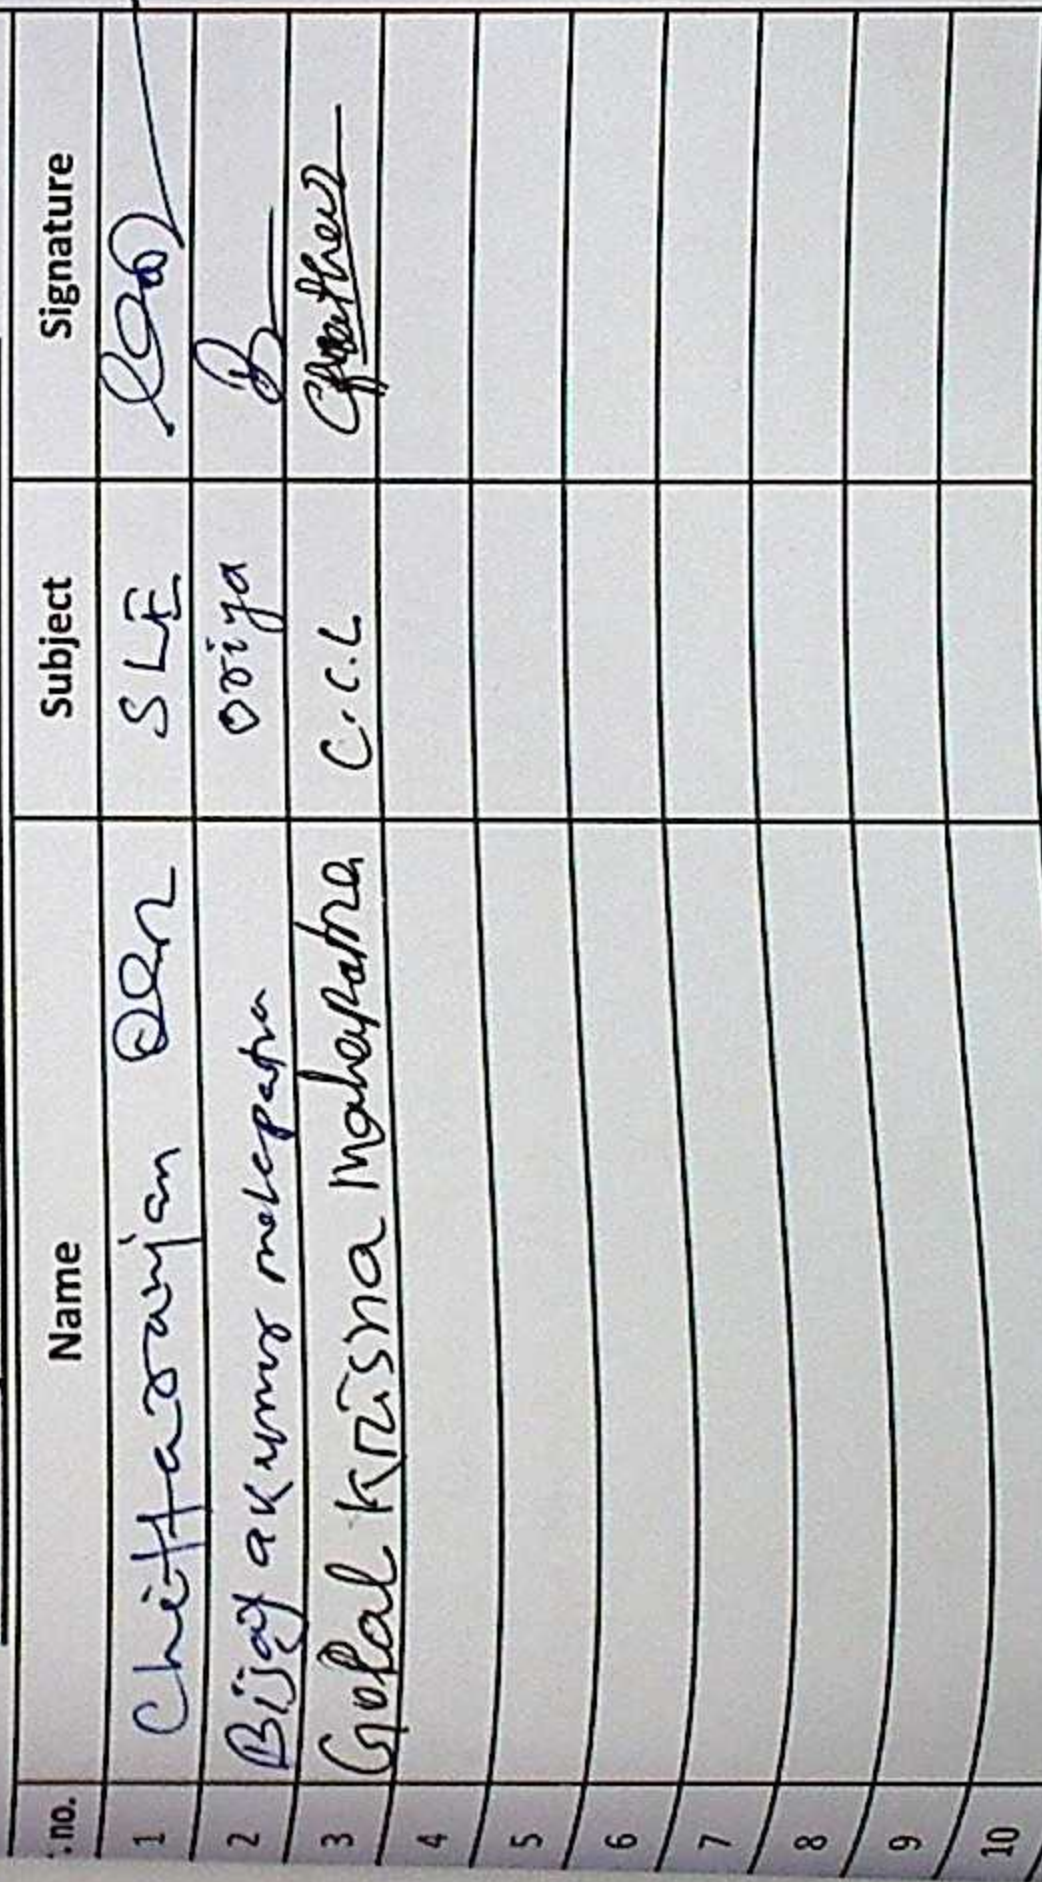 .no. Name Subject Signature
1 Chittaranjan SLE
2 Bijay akumar mohapatra oriya
3 Gopal Krisna Mahapatra C.C.L
4
5
6
7
8
9
10